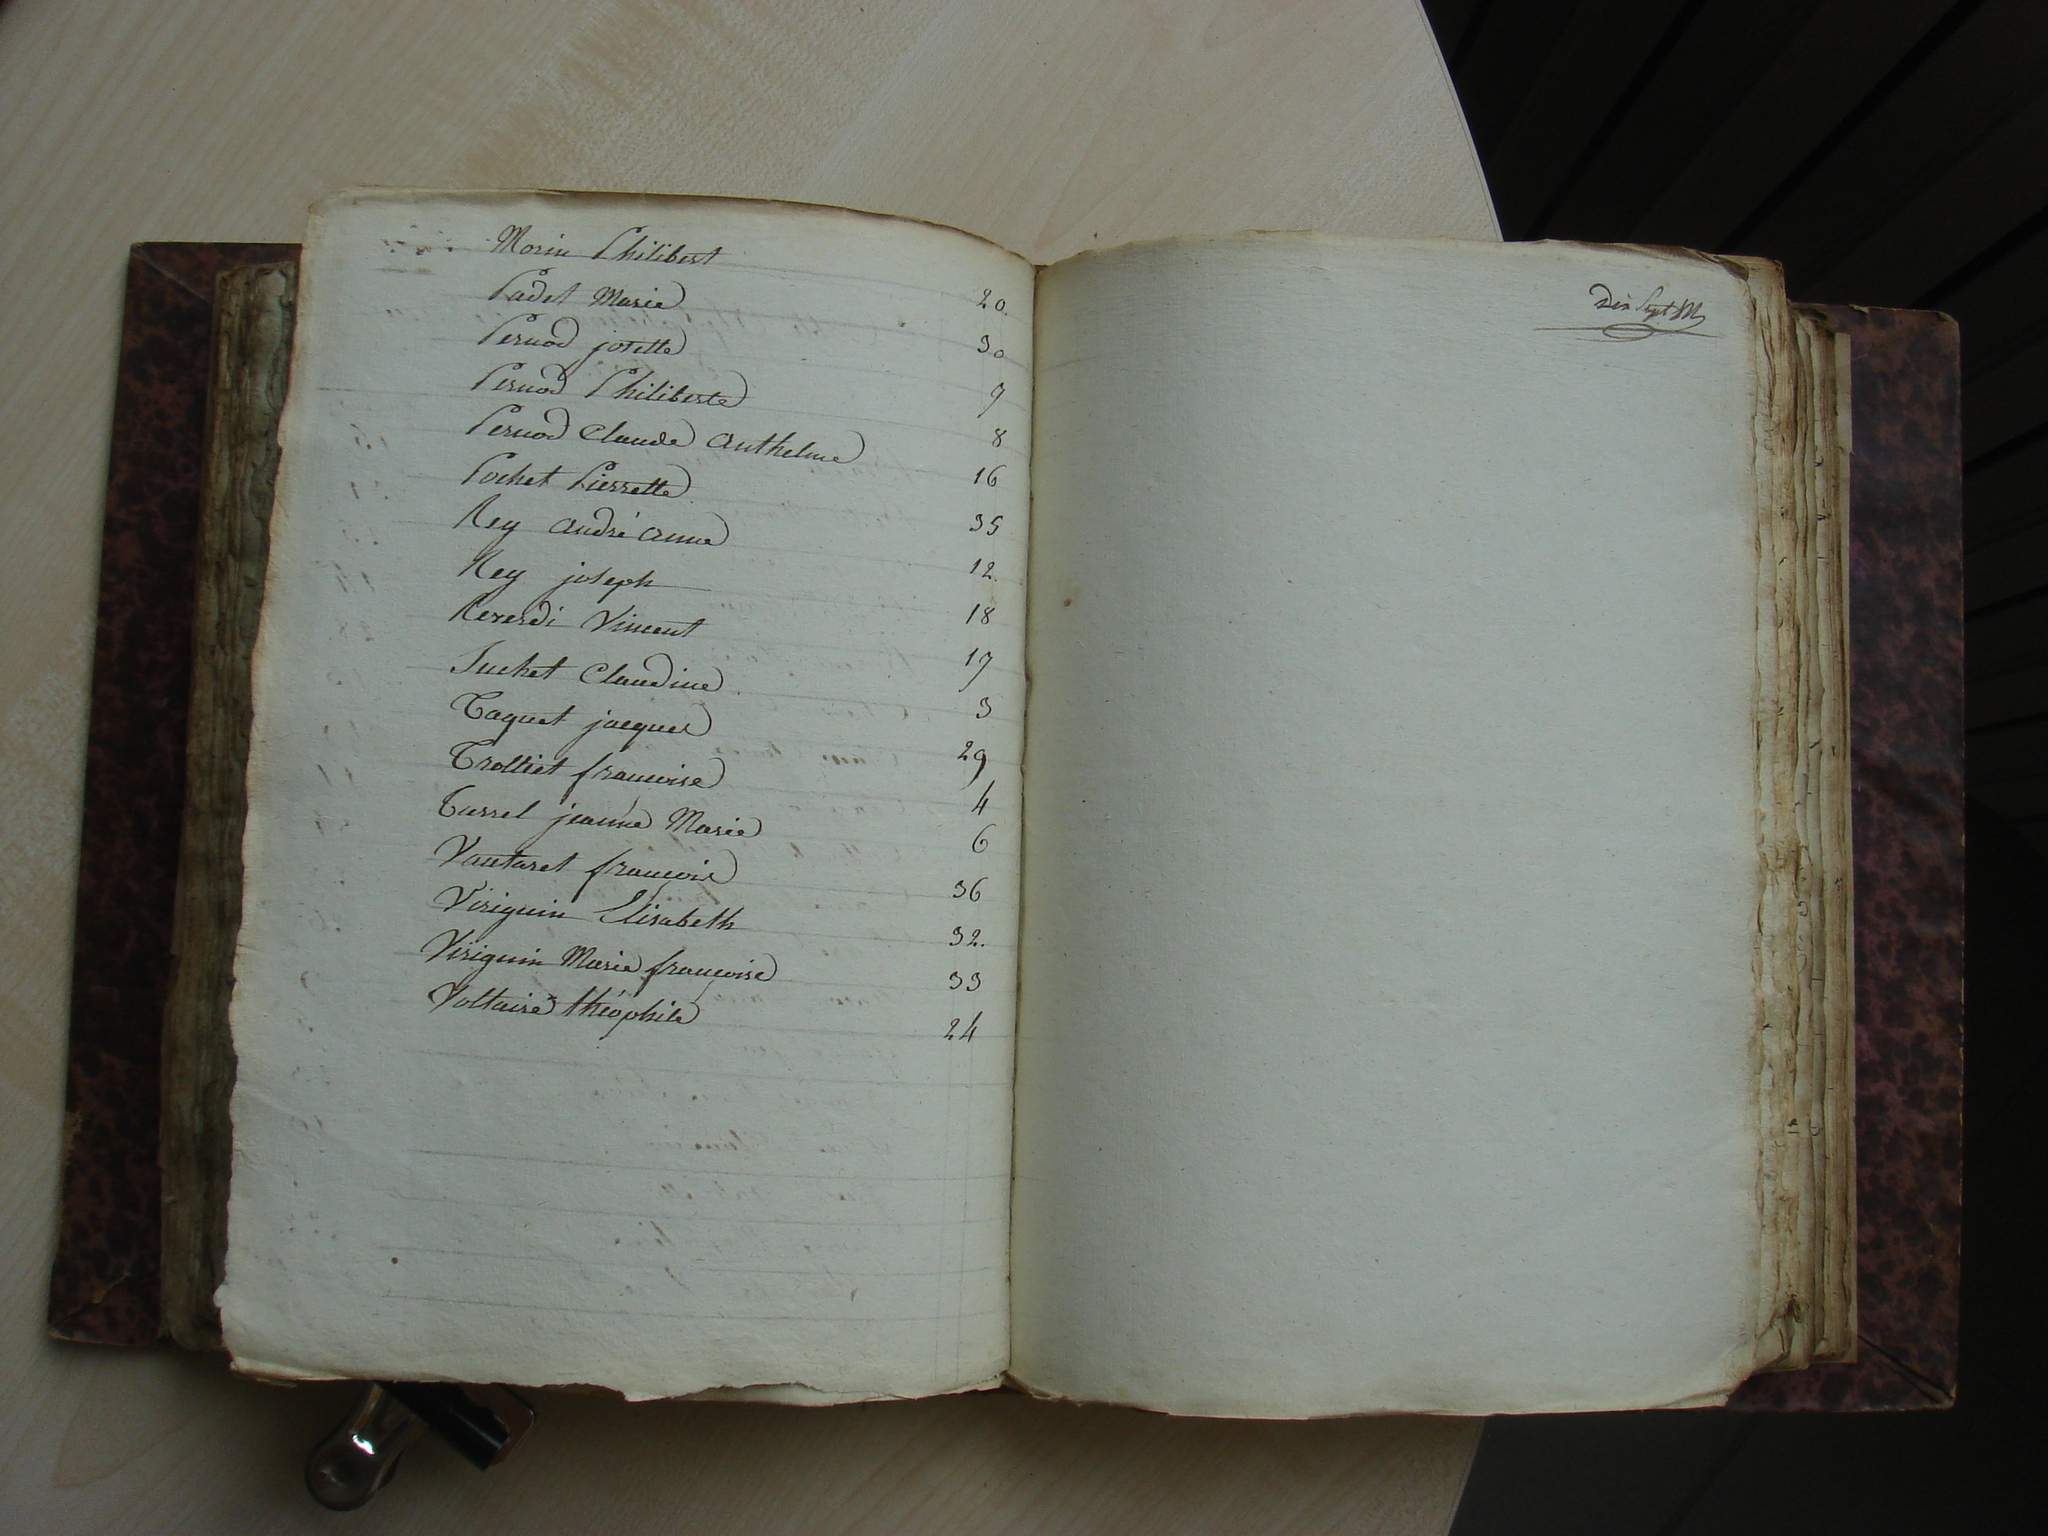 Morin Philibert 20.
Padet Marie 30
Pernod josette 7
Pernod Philiberte 8
Pernod Claude Anthelme 16
Pochet Pierrette 35
Rey andré anne 12.
Rey joseph 18
Reverdi Vincent 17
Suchet Claudine 3
Taquet jacques 29
Trolliet francoise 4
Turrel jeanne Marie 6
Vautaret françois 36
Viriguin Elisabeth 32.
Viriguin Marie françoise 33
Voltaire théophile 24
Dix Sept